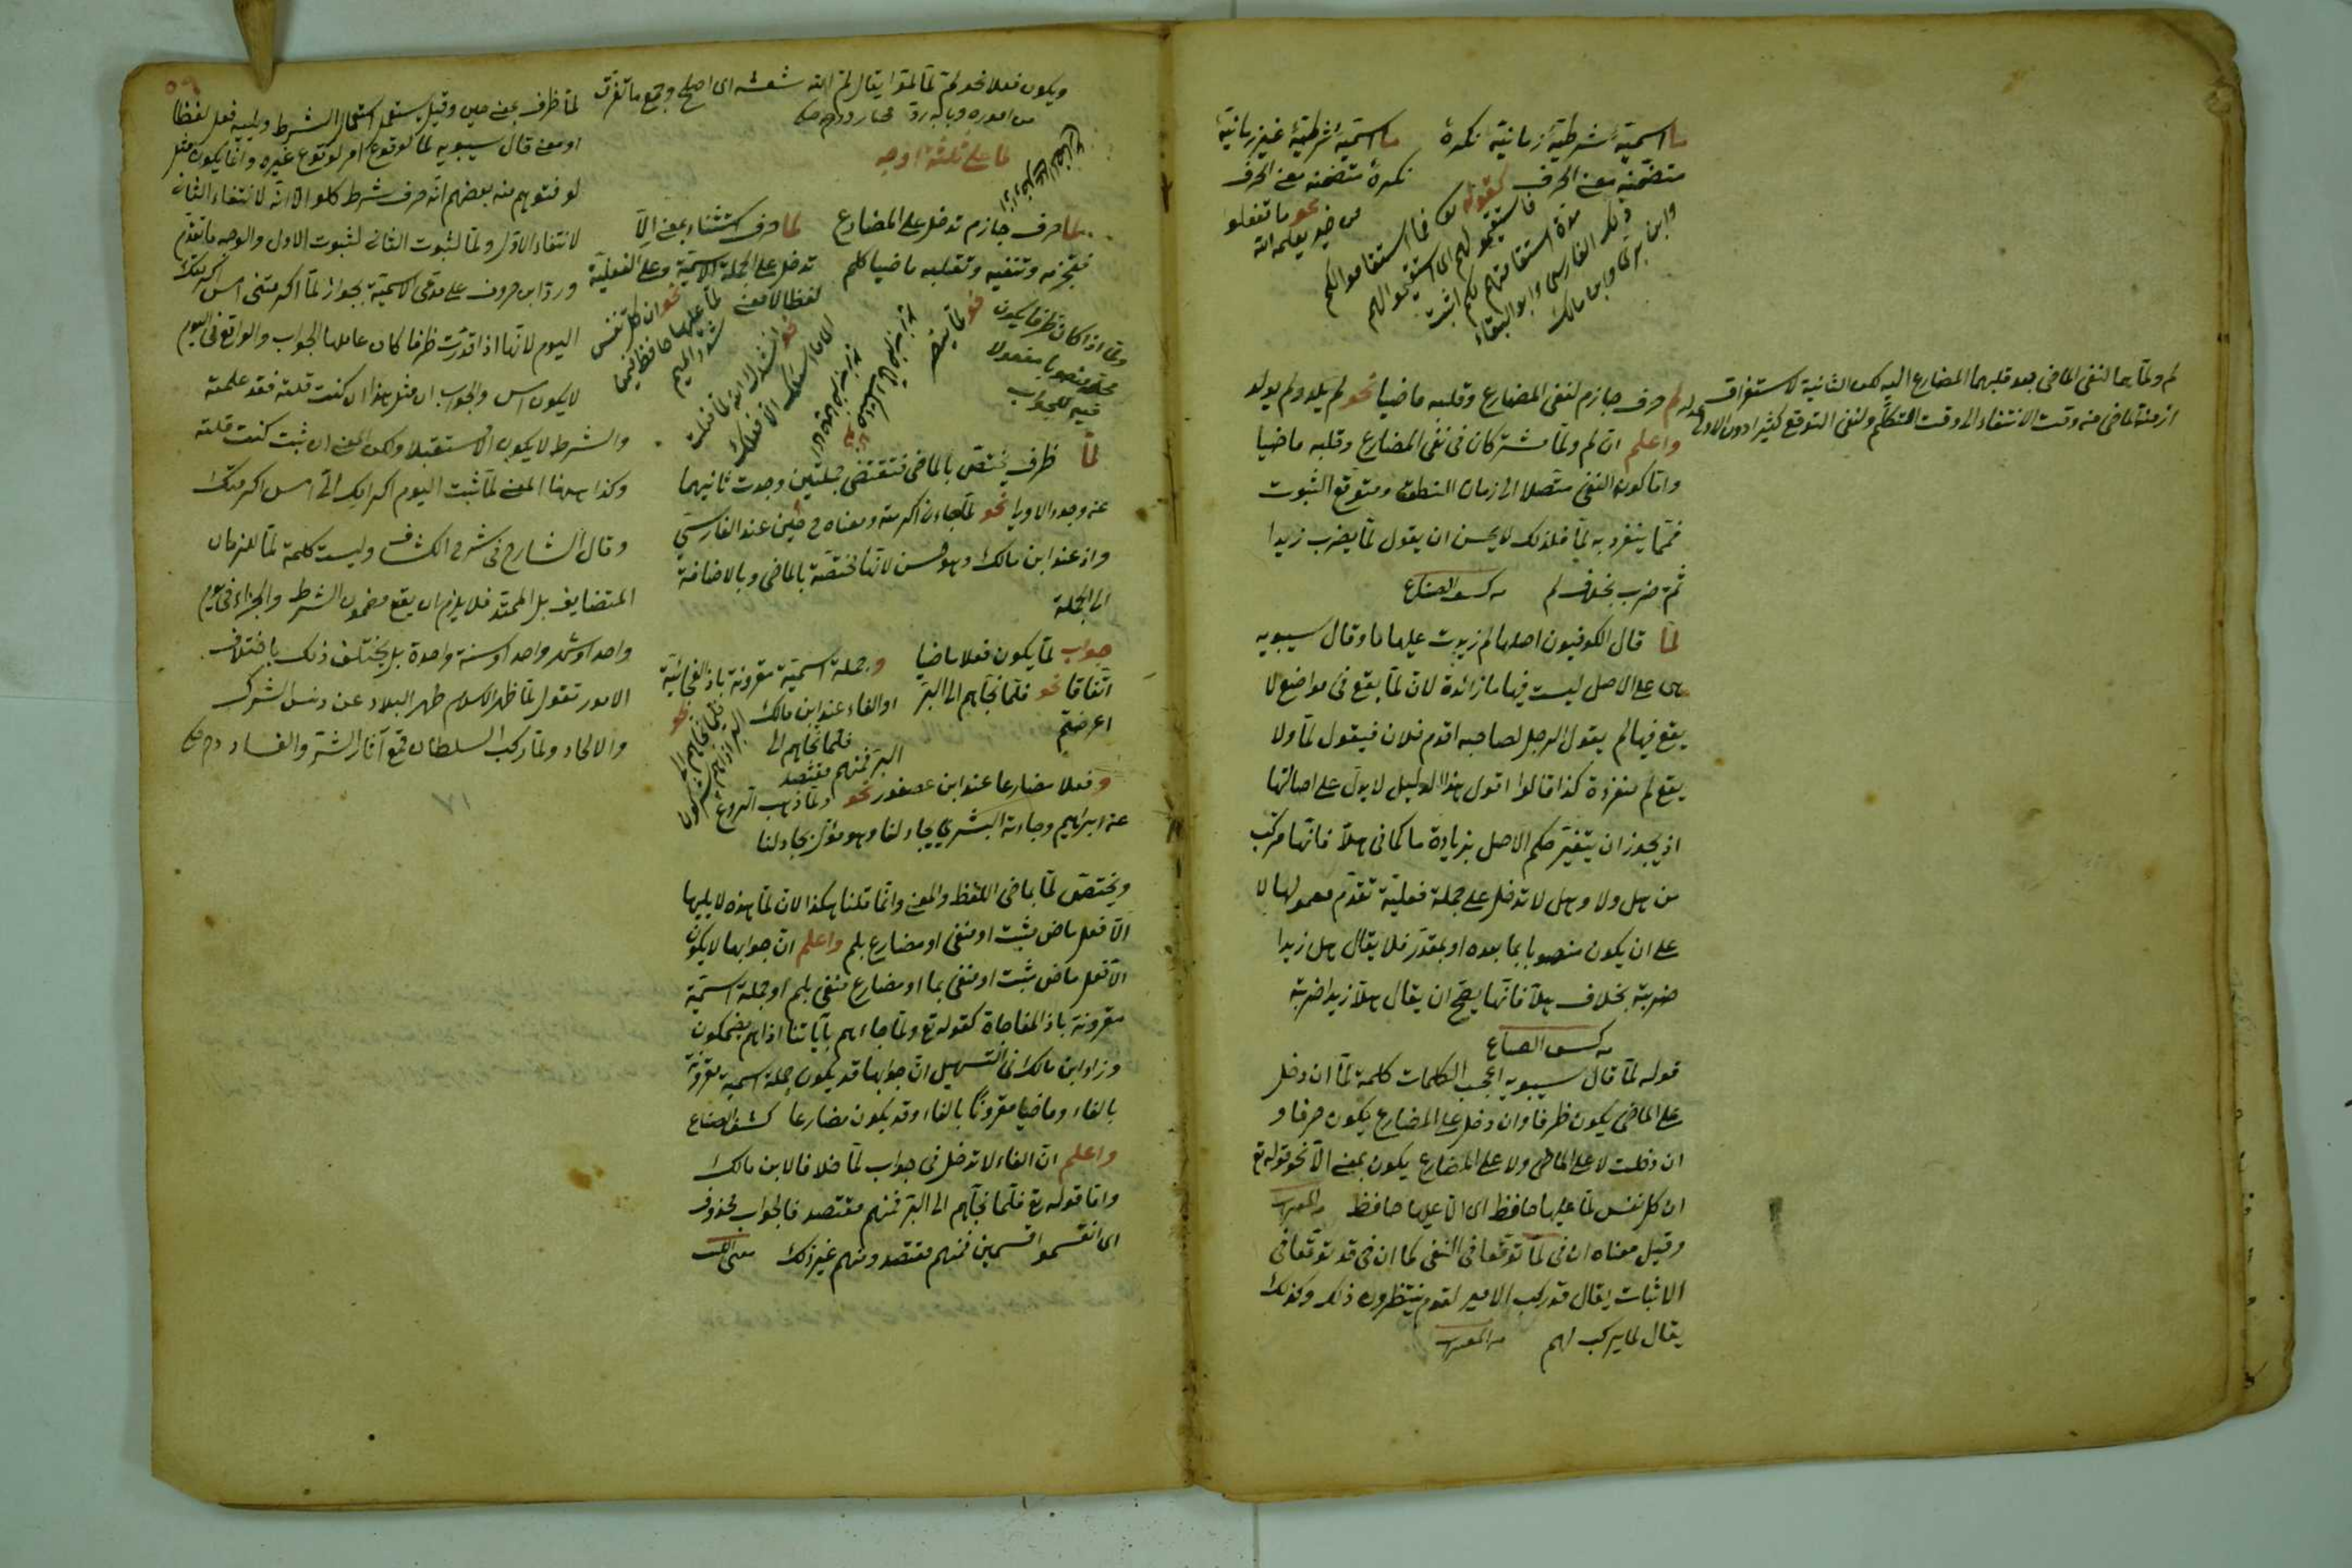 ما اسمية شرطية زمانية نكرة
متضمنة معنى الحرف كقوله تع فما استقاموا لكم
فاستقيموا لهم اى استقيموا لهم
مدة استقامتهم لكم اثبت
ذلك الفارسى وابو البقاء
وابن برى وابن مالك
ما اسمية شرطية غير زمانية
نكرة متضمنة معنى الحرف
نحو ما تفعلوا
من خير يعلمه الله
لم ولما هما لنفى الماضى بعد قلبهما المضارع اليه لكن الثانية لاستغراق
ازمنة الماضى من وقت الانتفاء الى وقت التكلم ولنفى التوقع كثيرا دون الاولى
لم حرف جازم لنفى المضارع وقلبه ماضيا نحو لم يلد ولم يولد
واعلم ان لم ولما مشتركان فى نفى المضارع وقلبه ماضيا
واما كون النفى متصلا الى زمان النطق ومتوقع الثبوت
فمما ينفرد به لما فلذلك لا يحسن ان يقول لما يضرب زيدا
ثم ضرب بخلاف لم
لما قال الكوفيون اصلها لم زيدت عليها ما وقال سيبويه
هى على الاصل ليست فيها ما زائدة لان لما يقع فى مواضع لا
يقع فيها لم يقول الرجل لصاحبه اقدم فلان فيقول لما ولا
يقع لم منفردة كذا قالوا اقول هذا الدليل لا يدل على اصالتها
اذ يجوز ان يتغير حكم الاصل بزيادة ما كما فى هلا فانها مركب
من هل ولا وهل لا تدخل على جملة فعلية تقدم معمولها لا
على ان يكون منصوبا بما بعده او بمقدر فلا يقال هل زيدا
ضربته بخلاف هلا فانها يصح ان يقال هلا زيدا ضربته
قوله لما قال سيبويه اعجب الكلمات كلمة لما ان دخل
على الماضى يكون ظرفا وان دخل على المضارع يكون حرفا و
ان دخلت لا على الماضى ولا على المضارع يكون بمعنى الا نحو قوله تع
ان كل نفس لما عليها حافظ اى الا عليها حافظ
وقيل معناه ان فى لما توقعا فى النفى كما ان فى قد توقعا فى
الاثبات يقال قد ركب الامير لقوم ينتظرون ذلك وكذلك
يقال لما يركب لهم
ويكون فعلا نحو لم لما لموا يقال لم الله شعثه اى اصلح وجمع ما تفرق
من اموره وبابه رد
لما على ثلثة اوجه
لما حرف جازم تدخل على المضارع
فتجزمه وتنفيه وتقلبه ماضيا كلم
لما حرف استثناء بمعنى الا
تدخل على الجملة الاسمية وعلى الفعلية
لفظا لا معنى
نحو ان كل نفس
لما عليها حافظ فيمن
شدد الميم
نحو انشدك الله لما فعلت
اى ما اسئلك الا فعلك
لما ظرف يختص بالماضى فتقتضى جملتين وجدت ثانيهما
عند وجود الاولى نحو لما جاءنى اكرمته ومعناه حين عند الفارسى
واذ عند ابن مالك وهو حسن لانها مختصة بالماضى وبالاضافة
الى الجملة
جواب لما يكون فعلا ماضيا
اتفاقا نحو فلما نجاهم الى البر
اعرضتم
وجملة اسمية مقرونة باذا الفجائية
او الفاء عند ابن مالك
نحو
فلما نجاهم الى
البر اذا هم يشركون
فلما نجاهم الى
البر فمنهم مقتصد
وفعلا مضارعا عند ابن عصفور نحو ولما ذهب الروع
عن ابراهيم وجاءته البشرى يجادلنا وهو مؤول بجادلنا
ويختص لما بماضى اللفظ والمعنى وانما قلنا هكذا لان لما هذه لا يليها
الا فعل ماض مثبت او منفى او مضارع بلم واعلم ان جوابها لا يكون
الا فعل ماض مثبت او منفى بما او مضارع منفى بلم او جملة اسمية
مقرونة باذا المفاجاة كقوله تع ولما جاءهم بآياتنا اذا هم يضحكون
وزاد ابن مالك فى التسهيل ان جوابها قد يكون جملة اسمية مقرونة
بالفاء وماضيا مقرونا بالفاء وقد يكون مضارعا
واعلم ان الفاء لا تدخل فى جواب لما خلافا لابن مالك
واما قوله تع فلما نجاهم الى البر فمنهم مقتصد فالجواب محذوف
اى انقسموا قسمين فمنهم مقتصد ومنهم غير ذلك
لما ظرف بمعنى حين وقيل يستعمل استعمال الشرط ويليه فعل لفظا
او معنى قال سيبويه لما لوقوع امر لوقوع غيره وانما يكون مثل
لو فتوهم منه بعضهم انه حرف شرط كلو الا ان لو لانتفاء الثانى
لانتفاء الاول ولما لثبوت الثانى لثبوت الاول والوجه ما تقدم
ورد ابن خروف على مدعى الاسمية بجواز لما اكرمتنى امس اكرمتك
اليوم لانها اذا قدرت ظرفا كان عاملها الجواب والواقع فى اليوم
لا يكون امس والجواب ان مثل هذا ان كنت قلته فقد علمته
والشرط لا يكون الا مستقبلا ولكن المعنى ان ثبت كنت قلته
وكذا ههنا المعنى لما ثبت اليوم اكرامك اياى امس اكرمتك
وقال الشارح فى شرح الكشاف وليست كلمة لما للزمان
المتضايف بل الممتد فلا يلزم ان يقع مضمون الشرط والجزاء فى يوم
واحد او شهر واحد او سنة واحدة بل يختلف ذلك باختلاف
الامور تقول لما ظهر الاسلام طهر البلاد عن دنس الشرك
والالحاد ولما ركب السلطان قمع آثار الشر والفساد
١٧